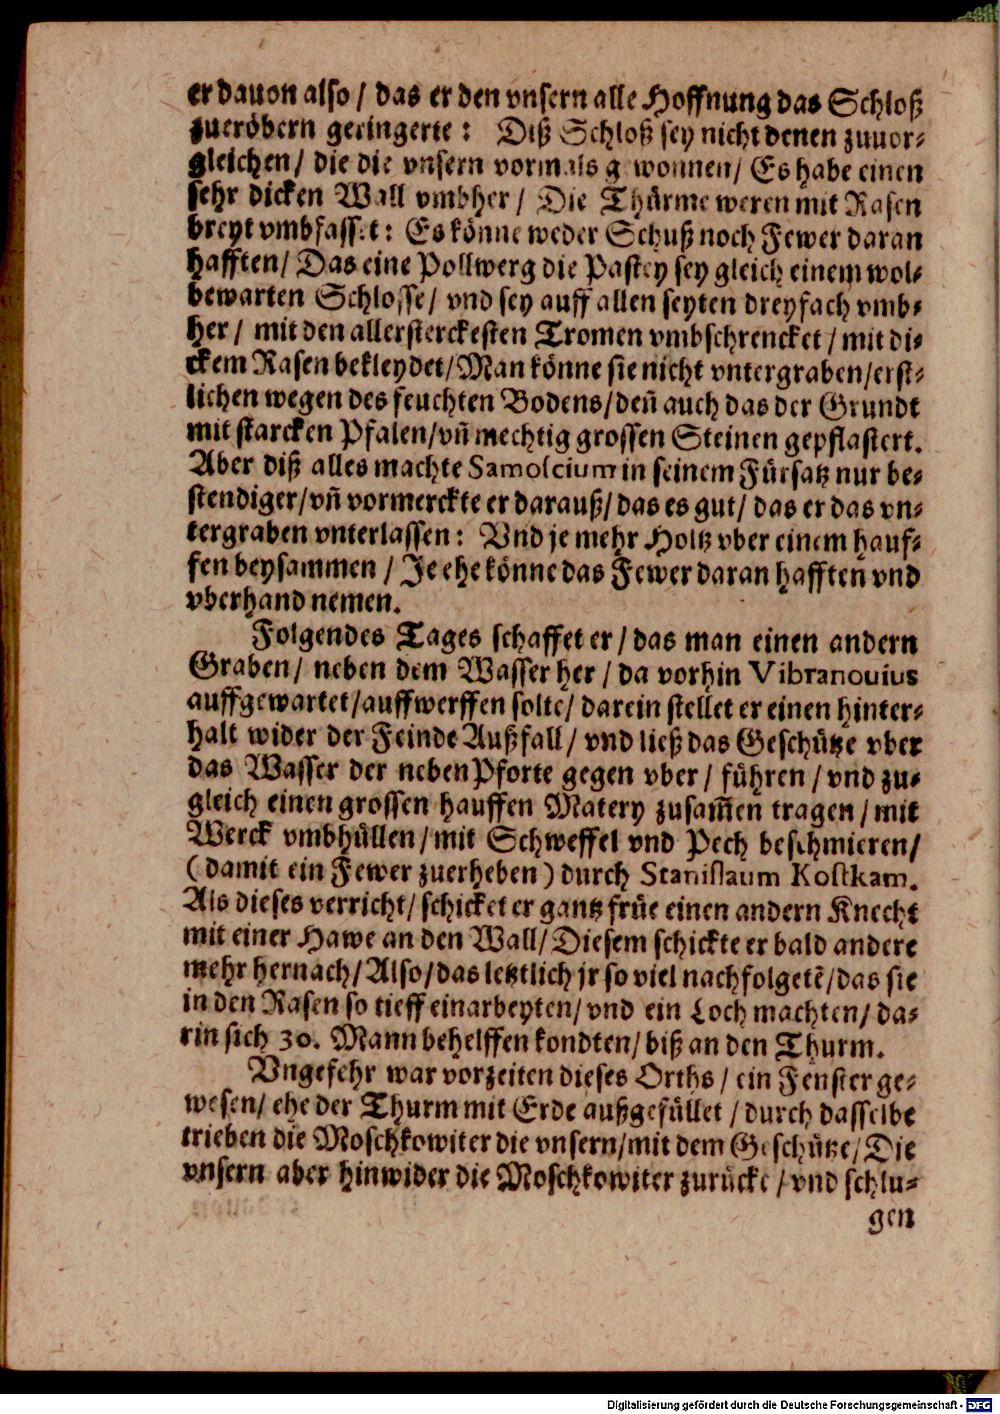 er dauon also / das er den vnsern alle Hoffnung das Schloß
zueröbern geringerte : Diß Schloß sey nicht denen zuuor-
gleichen / die die vnsern vormals g wonnen / Es habe einen
sehr dicken Wall vmbher / Die Thürme weren mit Rasen
breyt vmbfasset : Es könne weder Schuß noch Fewer daran
hafften / Das eine Pollwerg die Pastey sey gleich einem wol-
bewarten Schlosse / vnd sey auff allen seyten dreyfach vmb-
her / mit den allersterckesten Tromen vmbschrencket / mit di-
ckem Rasen bekleydet / Man könne sie nicht vntergraben / erst-
lichen wegen des feuchten Bodens / deñ auch das der Grundt
mit starcken Pfalen / vñ mechtig grossen Steinen gepflastert.
Aber diß alles machte Samolcium in seinem Fürsatz nur be-
stendiger / vñ vormerckte er darauß / das es gut / das er das vn-
tergraben vnterlassen : Vnd je mehr Holtz vber einem hauf-
fen beysammen / Je ehe könne das Fewer daran hafften vnd
vberhand nemen.
Folgendes Tages schaffet er / das man einen andern
Graben / neben dem Wasser her / da vorhin Vibranouius
auffgewartet / auffwerffen solte / darein stellet er einen hinter-
halt wider der Feinde Außfall / vnd ließ das Geschütze vber
das Wasser der neben Pforte gegen vber / führen / vnd zu-
gleich einen grossen hauffen Matery zusam̃en tragen / mit
Werck vmbhüllen / mit Schweffel vnd Pech beschmieren /
( damit ein Fewer zuerheben ) durch Stanislaum Kostkam.
Als dieses verricht / schicket er gantz früe einen andern Knecht
mit einer Hawe an den Wall / Diesem schickte er bald andere
mehr hernach / Also / das letztlich jr so viel nachfolgetẽ / das sie
in den Rasen so tieff einarbeyten / vnd ein Loch machten / da-
rin sich 30. Mann behelffen kondten / biß an den Thurm.
Vngefehr war vorzeiten dieses Orths / ein Fenster ge-
wesen / ehe der Thurm mit Erde außgefüllet / durch dasselbe
trieben die Moschkowiter die vnsern / mit dem Geschütze / Die
vnsern aber hinwider die Moschkowiter zurücke / vnd schlu-
gen
Digitalisierung gefördert durch die Deutsche Forschungsgemeinschaft - DFG